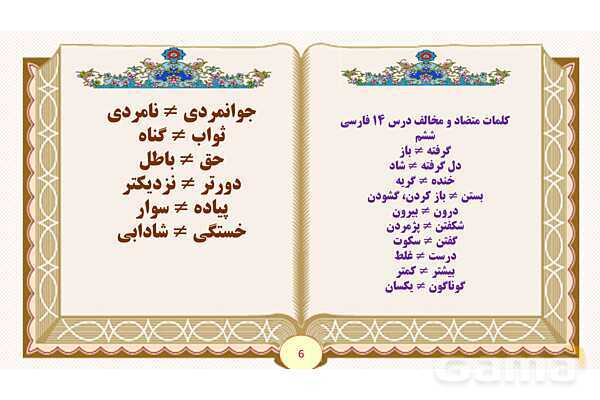 کلمات متضاد و مخالف درس ۱۴ فارسی
ششم
گرفته ≠ باز
دل گرفته ≠ شاد
خنده ≠ گریه
بستن ≠ باز کردن، گشودن
درون ≠ بیرون
شکفتن ≠ پژمردن
گفتن ≠ سکوت
درست ≠ غلط
بیشتر ≠ کمتر
گوناگون ≠ یکسان
جوانمردی ≠ نامردی
ثواب ≠ گناه
حق ≠ باطل
دورتر ≠ نزدیکتر
پیاده ≠ سوار
خستگی ≠ شادابی
6
Gama